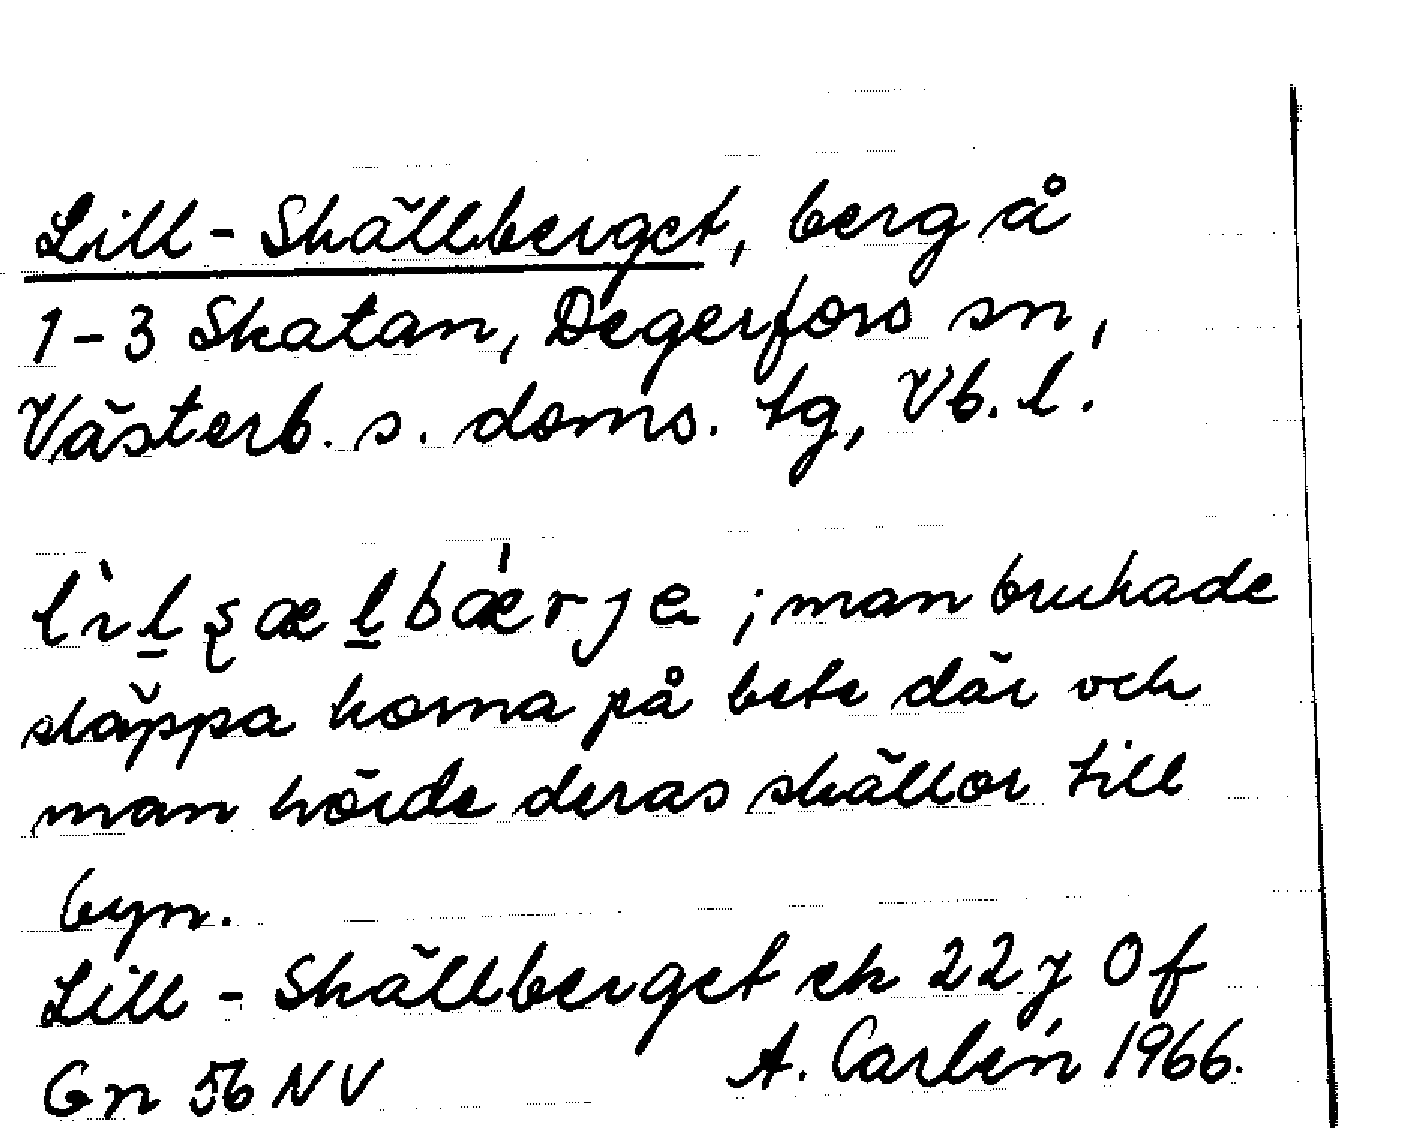 Lill-Skällberget, berg å
1-3 Skatan, Degerfors sn,
Västerb. s. doms. tg, Vb. l.
lìl̠ ʂæl̠bǽrje ; man brukade
släppa korna på bete där och
man hörde deras skällor till
byn.
Lill-Skällberget ek 22 j 0 f
Gn 56 NV A. Carlén 1966.